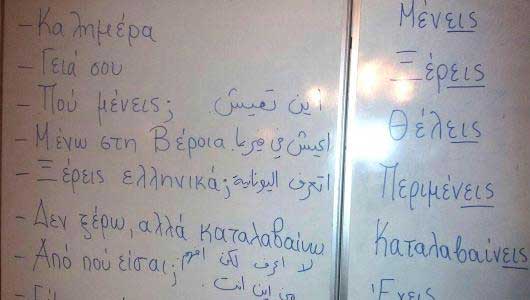 - Καλημέρα
- Γειά σου
- Πού μένεις; اين تعيش
- Μένω στη Βέροια اعيش في فيريا
- Ξέρεις ελληνικά; اتعرف اليونانية
- Δεν ξέρω, αλλά καταλαβαίνω
لا اعرف لكن افهم
- Από πού είσαι;
من اين انت
Μένεις
Ξέρεις
Θέλεις
Περιμένεις
Καταλαβαίνεις
Έχεις